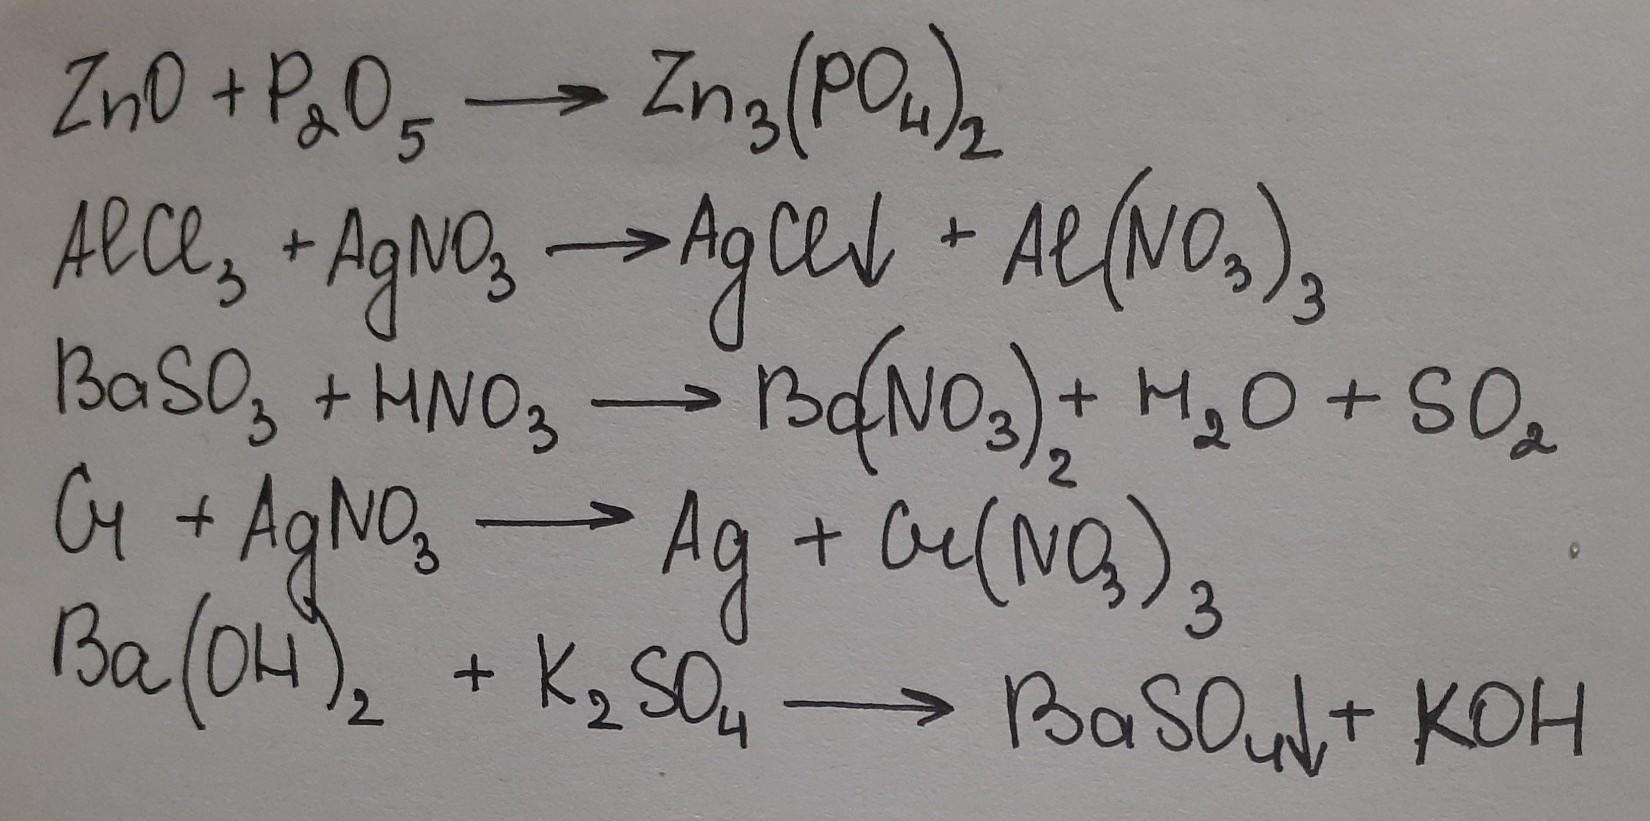 ZnO + P₂O₅ → Zn₃(PO₄)₂
AlCl₃ + AgNO₃ → AgCl↓ + Al(NO₃)₃
BaSO₃ + HNO₃ → Ba(NO₃)₂ + H₂O + SO₂
Cu + AgNO₃ → Ag + Cu(NO₃)₃
Ba(OH)₂ + K₂SO₄ → BaSO₄↓ + KOH